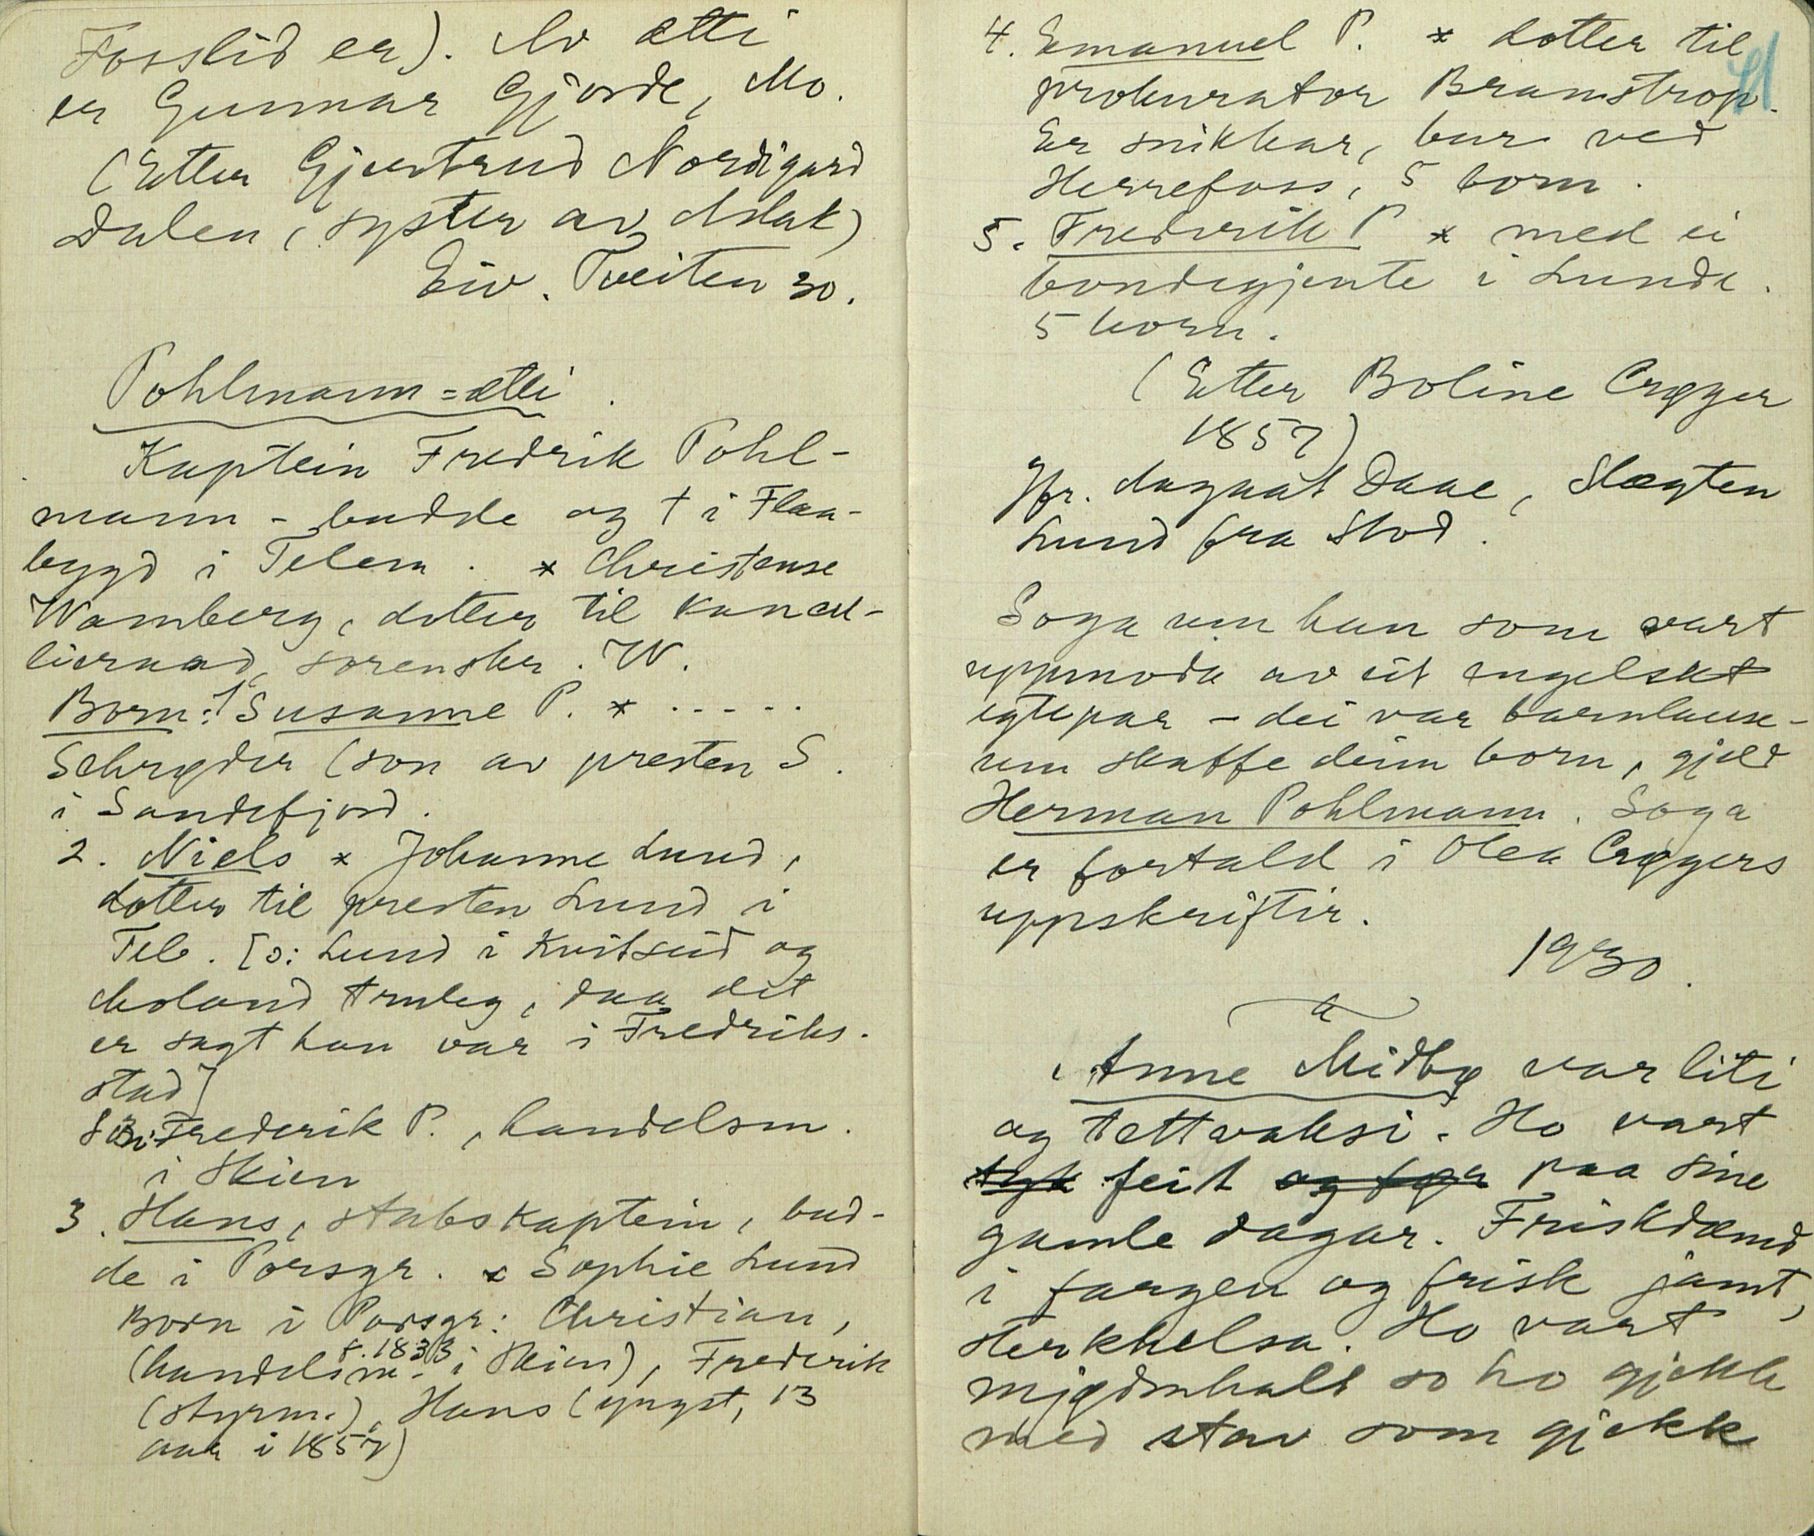 Fosslid er). Av ætti
er Gunnar Gjorde, Mo.
(Etter Gjertrud Nordigard
Dalen, syster av Aslak)
Eiv. Tveiten 30.
Pohlmann=ætti.
Kaptein Fredrik Pohl-
mann - budde og † i Flaa-
bygd i Telem. * Christense
Wamberg, dotter til kancel-
lieraad, sorenskr. W.
Born: 1 Susanne P. * .....
Schrøder (son av presten S.
i Sandefjord.
2. Niels * Johanne Lund,
dotter til presten Lund i
Tel. [ɔ: Lund i Kvitseid og
Moland truleg, daa det
er sagt han var i Fredriks-
stad]
Frederik P., handelsm.
i Skien
3. Hans, stabskaptein, bud-
de i Porsgr. * Sophie Lund
Born i Porsgr: Christian,
f. 1833
(handelsm. i Skien), Frederik
(styrm.), Hans (yngst, 13
aar i 1857)
41
4. Emanuel P. * dotter til
prokurator Bramstrop.
Er snikkar, bur ved
Herrefoss, 5 born.
5. Fredrik P * med ei
bondegjente i Lunde.
5 born.
(Etter Boline Crøger
1857)
Jfr. Aagaat Daae, Slægten
Lund fra Stod.
Soga um han som vart
uppmoda av eit engelskt
egtepar - dei var barnlause -
um skaffe deim born, gjeld
Herman Pohlmann. Soga
er fortald i Olea Crøgers
uppskriftir.
1930.
a
Anne Midbø var liti
og tettvaksi. Ho vart
tyk feit og før paa sine
gamle dagar. Friskdæmd
i fargen og frisk jamt,
sterkhelsa. Ho vart
mjødmhalt so ho gjekk
med stav som gjekk